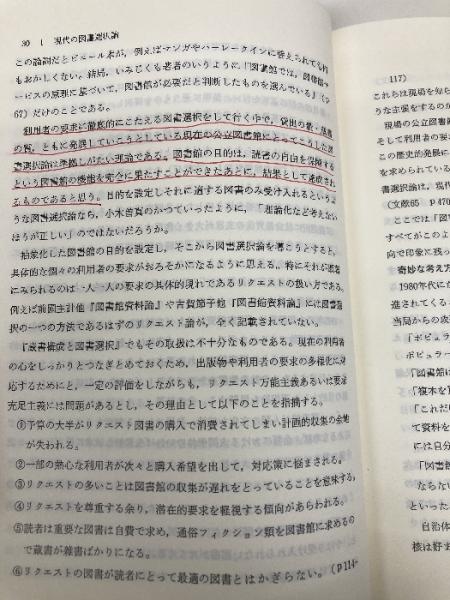 30 | 現代の図書選択論
この論調だとピュール本が、例えばマンガやハーレークインに替えられても何
もおかしくない。結局、いみじくも著者のいうように「図書館では、図書館サ
ービスの原理に基づいて、図書館が必要だと判断したものを選んでいる」(p
67)だけのことである。
利用者の要求に徹底的にこたえる図書選択をして行く中で、貸出の数・
の質、ともに発展していこうとしている現在の公立図書館にとってこうした図
書選択論は承服しがたい理論である。図書館の目的は、読者の自由を保障する
という図書館の機能を完全に果たすことができたあとに、結果として達成され
るものであると思う。目的を設定しそれに適する図書のみ受け入れるというよ
うな図書選択論なら、小木曽真のかつていったように、「理論化など考えない
ほうが正しい」のではないだろうか。
抽象化した図書館の目的を設定し、そこから図書選択論を導こうとすると、
具体的な個々の利用者の要求がおろそかになるように思える。特にそれが顕著
にみられるのは一人一人の要求の具体的現れであるリクエストの扱い方である。
例えば前園主計他『図書館資料論』や古賀節子他『図書館資料論』には図書選
択の一つの方法であるはずのリクエスト論が、全く記載されていない。
『蔵書構成と図書選択』でもその取扱は不十分なものである。現在の利用者
の心をしっかりとつなぎとめておくため、出版物や利用者の要求の多様化に対
応するためにと、一定の評価をしながらも、リクエスト万能主義あるいは要求
充足主義には問題があるとし、その理由として以下のことを指摘する。
①予算の大半がリクエスト図書の購入で消費されてしまい計画的収集の余地
が失われる。
②一部の熱心な利用者が次々と購入希望を出して、対応策に悩まされる。
③リクエストの多いことは図書館の収集が遅れをとっていることを意味する。
④リクエストを尊重する余り、潜在的要求を軽視する傾向があらわれる。
⑤読者は重要な図書は自費で求め、通俗フィクション類を図書館に求めるの
で蔵書が雑書ばかりになる。
⑥リクエストの図書が読者にとって最適の図書とはかぎらない。(p114-
117)
これらは現場を知ら
うな主張をするのか
現場の公立図書館
そして利用者の要求
この歴史的発展に
を求められている
書選択論は、現
(文献65 p470
ここでは「図
すべてがこのよ
向で印象に残っ
奇妙な考え方
1980年代に
進されてくる
当局からの改
「ポピュ
ポピュラー
「複本を買
「これだけ
て資料を
には自分
「図書館
ならない
といった
自治体
核は貯ま